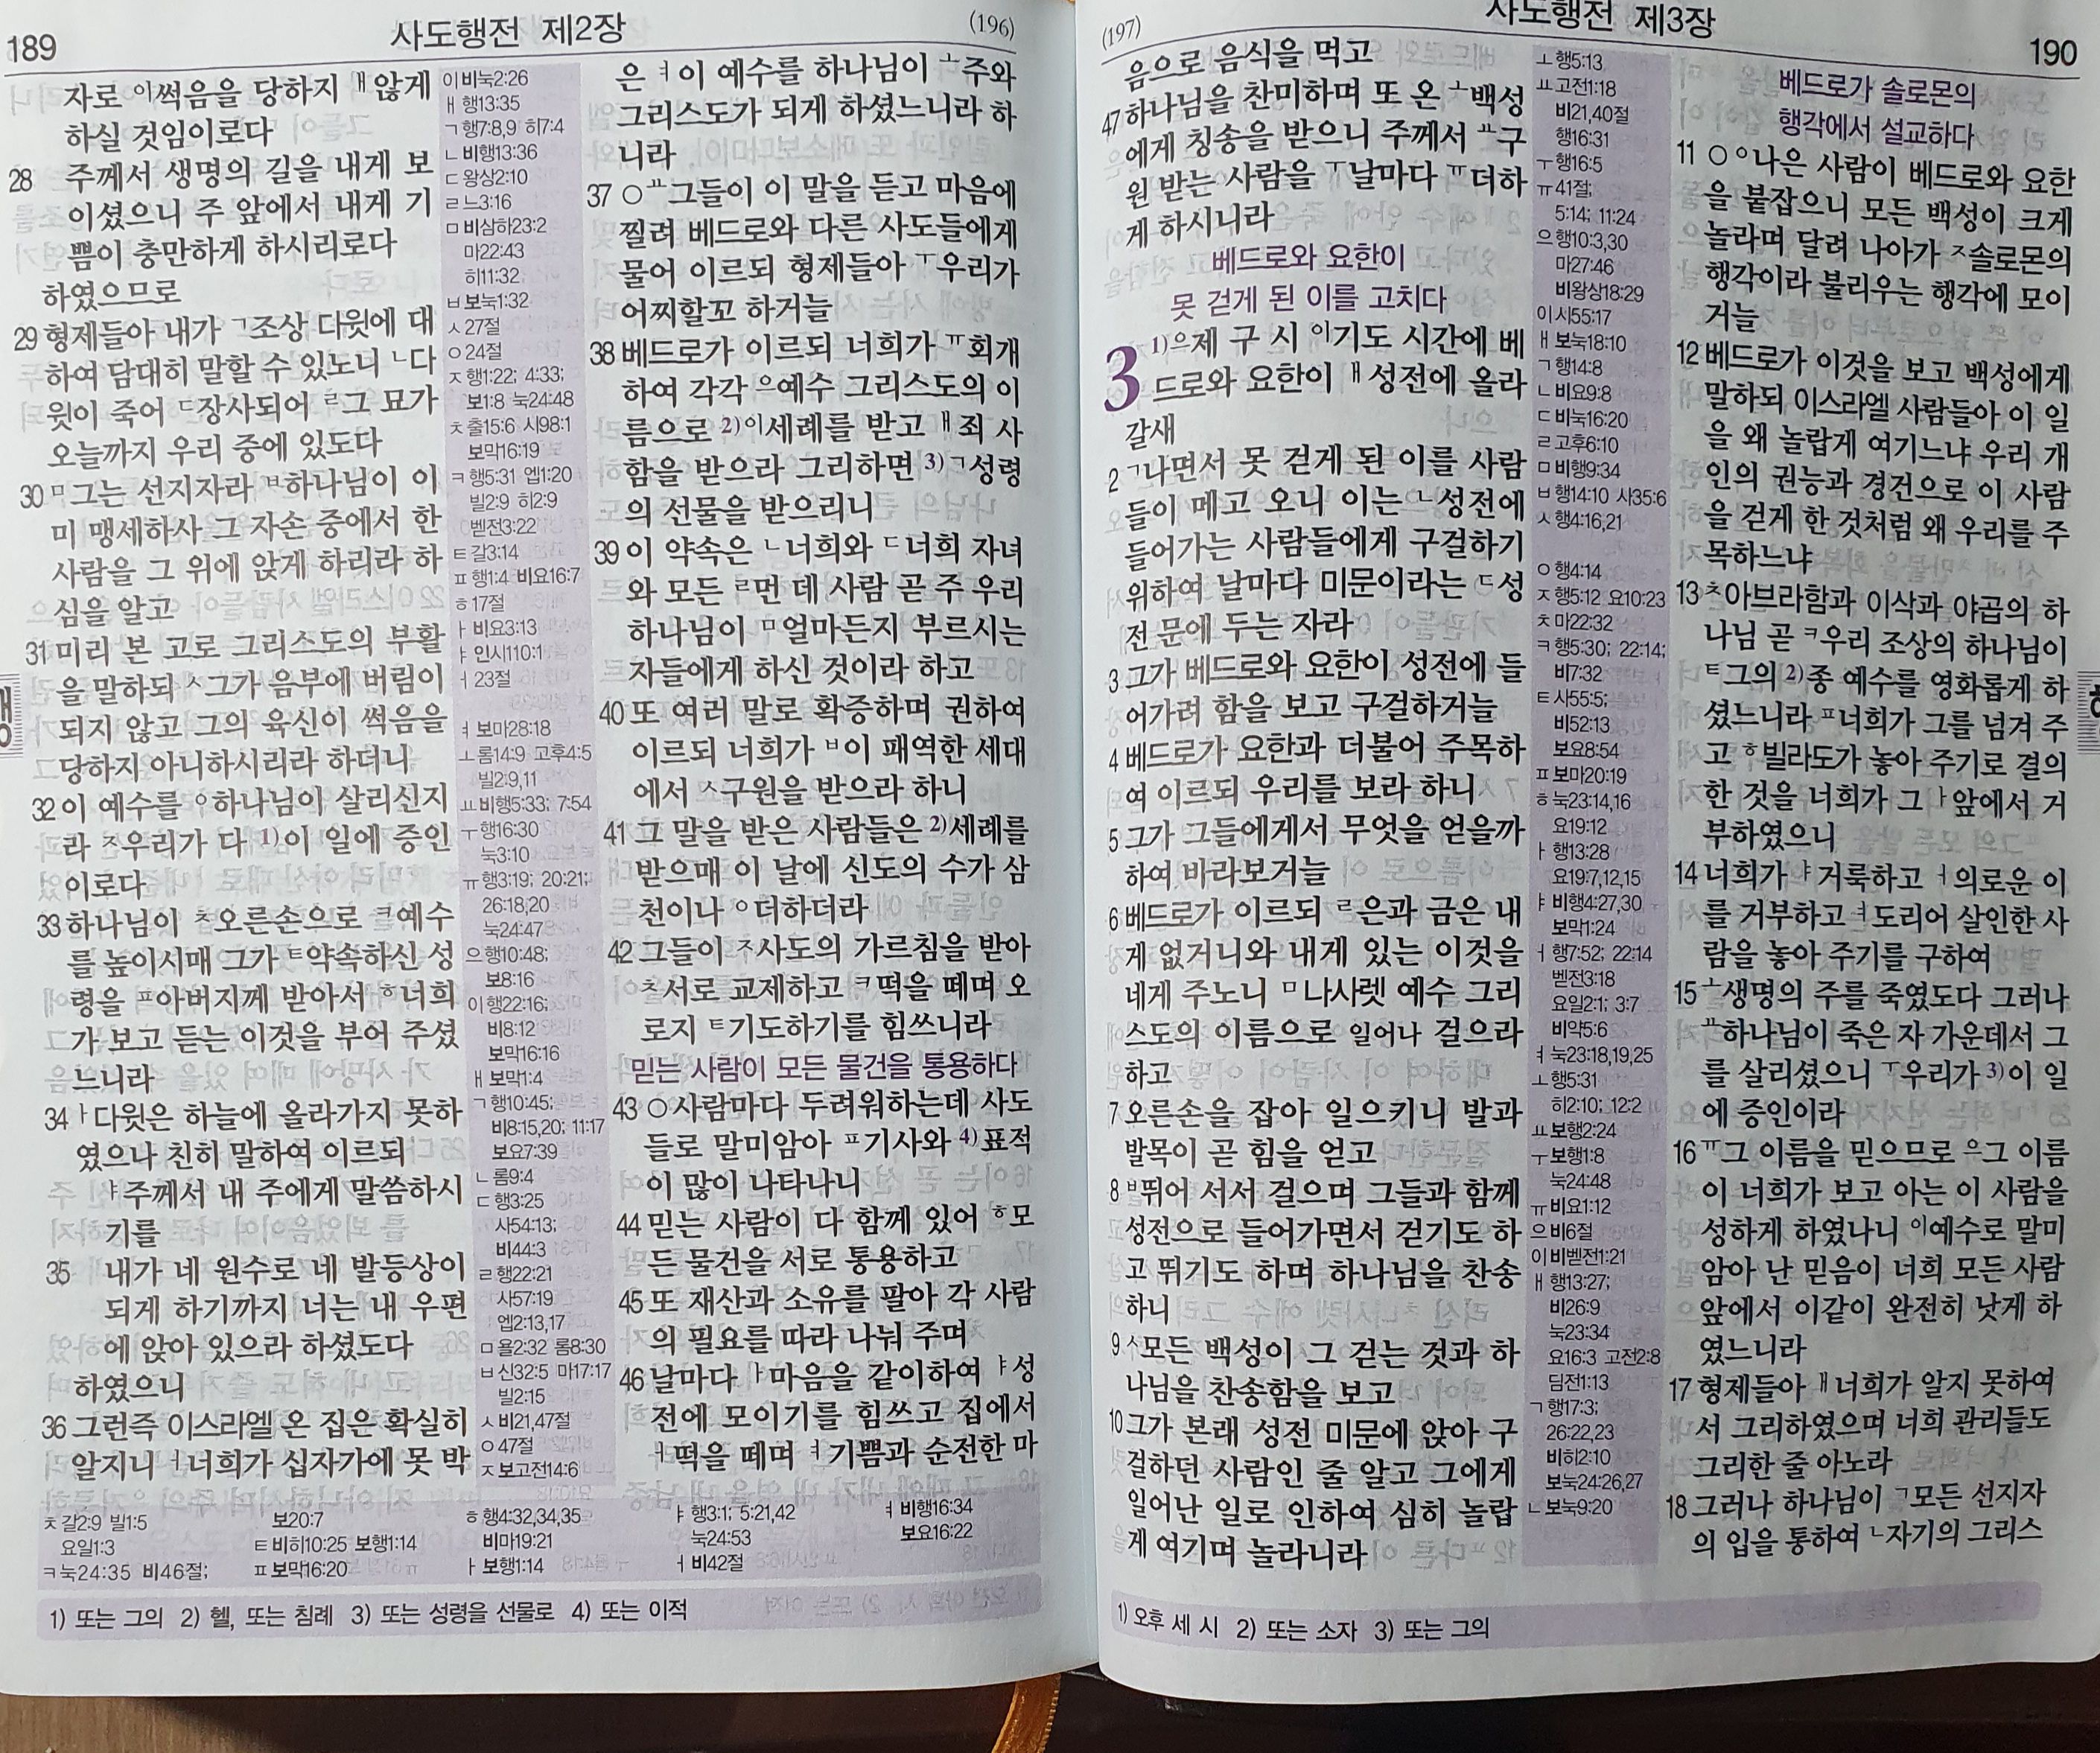 189
사도행전 제2장
(196)
자로 이썩음을 당하지 ㅐ않게
하실 것임이로다
28 주께서 생명의 길을 내게 보
이셨으니 주 앞에서 내게 기
쁨이 충만하게 하시리로다
하였으므로
29 형제들아 내가 ㄱ조상 다윗에 대
하여 담대히 말할 수 있노니 ㄴ다
윗이 죽어 ㄷ장사되어 ㄹ그 묘가
오늘까지 우리 중에 있도다
30 ㅁ그는 선지자라 ㅂ하나님이 이
미 맹세하사 그 자손 중에서 한
사람을 그 위에 앉게 하리라 하
심을 알고
31 미리 본 고로 그리스도의 부활
을 말하되 ㅅ그가 음부에 버림이
되지 않고 그의 육신이 썩음을
당하지 아니하시리라 하더니
32 이 예수를 ㅇ하나님이 살리신지
라 ㅈ우리가 다 1)이 일에 증인
이로다
33 하나님이 ㅊ오른손으로 ㅋ예수
를 높이시매 그가 ㅌ약속하신 성
령을 ㅍ아버지께 받아서 ㅎ너희
가 보고 듣는 이것을 부어 주셨
느니라
34 ㅏ다윗은 하늘에 올라가지 못하
였으나 친히 말하여 이르되
ㅑ주께서 내 주에게 말씀하시
기를
35 내가 네 원수로 네 발등상이
되게 하기까지 너는 내 우편
에 앉아 있으라 하셨도다
하였으니
36 그런즉 이스라엘 온 집은 확실히
알지니 ㅓ너희가 십자가에 못 박
이 비눅2:26
ㅐ 행13:35
ㄱ 행7:8,9 히7:4
ㄴ 비행13:36
ㄷ 왕상2:10
ㄹ 느3:16
ㅁ 비삼하23:2
마22:43
히11:32
ㅂ 보눅1:32
ㅅ 27절
ㅇ 24절
ㅈ 행1:22; 4:33;
보1:8 눅24:48
ㅊ 출15:6 시98:1
보막16:19
ㅋ 행5:31 엡1:20
빌2:9 히2:9
벧전3:22
ㅌ 갈3:14
ㅍ 행1:4 비요16:7
ㅎ 17절
ㅏ 비요3:13
ㅑ 인시110:1
ㅓ 23절
ㅕ 보마28:18
ㅗ 롬14:9 고후4:5
빌2:9,11
ㅛ 비행5:33; 7:54
ㅜ 행16:30
눅3:10
ㅠ 행3:19; 20:21;
26:18,20
눅24:47
으 행10:48;
보8:16
이 행22:16;
비8:12
보막16:16
ㅐ 보막1:4
ㄱ 행10:45;
비8:15,20; 11:17
보요7:39
ㄴ 롬9:4
ㄷ 행3:25
사54:13;
비44:3
ㄹ 행22:21
사57:19
엡2:13,17
ㅁ 욜2:32 롬8:30
ㅂ 신32:5 마17:17
빌2:15
ㅅ 비21,47절
ㅇ 47절
ㅈ 보고전14:6
은 ㅕ이 예수를 하나님이 ㅗ주와
그리스도가 되게 하셨느니라 하
니라
37 ○ㅛ그들이 이 말을 듣고 마음에
찔려 베드로와 다른 사도들에게
물어 이르되 형제들아 ㅜ우리가
어찌할꼬 하거늘
38 베드로가 이르되 너희가 ㅠ회개
하여 각각 으예수 그리스도의 이
름으로 2)이세례를 받고 ㅐ죄 사
함을 받으라 그리하면 3)ㄱ성령
의 선물을 받으리니
39 이 약속은 ㄴ너희와 ㄷ너희 자녀
와 모든 ㄹ먼 데 사람 곧 주 우리
하나님이 ㅁ얼마든지 부르시는
자들에게 하신 것이라 하고
40 또 여러 말로 확증하며 권하여
이르되 너희가 ㅂ이 패역한 세대
에서 ㅅ구원을 받으라 하니
41 그 말을 받은 사람들은 2)세례를
받으매 이 날에 신도의 수가 삼
천이나 ㅇ더하더라
42 그들이 ㅈ사도의 가르침을 받아
ㅊ서로 교제하고 ㅋ떡을 떼며 오
로지 ㅌ기도하기를 힘쓰니라
믿는 사람이 모든 물건을 통용하다
43 ○사람마다 두려워하는데 사도
들로 말미암아 ㅍ기사와 4)표적
이 많이 나타나니
44 믿는 사람이 다 함께 있어 ㅎ모
든 물건을 서로 통용하고
45 또 재산과 소유를 팔아 각 사람
의 필요를 따라 나눠 주며
46 날마다 ㅏ마음을 같이하여 ㅑ성
전에 모이기를 힘쓰고 집에서
ㅓ떡을 떼며 ㅕ기쁨과 순전한 마
ㅊ 갈2:9 빌1:5
요일1:3
ㅋ 눅24:35 비46절;
보20:7
ㅌ 비히10:25 보행1:14
ㅍ 보막16:20
ㅎ 행4:32,34,35
비마19:21
ㅏ 보행1:14
ㅑ 행3:1; 5:21,42
눅24:53
ㅓ 비42절
ㅕ 비행16:34
보요16:22
1) 또는 그의 2) 헬, 또는 침례 3) 또는 성령을 선물로 4) 또는 이적
(197)
사도행전 제3장
190
음으로 음식을 먹고
47 하나님을 찬미하며 또 온 ㅗ백성
에게 칭송을 받으니 주께서 ㅛ구
원 받는 사람을 ㅜ날마다 ㅠ더하
게 하시니라
베드로와 요한이
못 걷게 된 이를 고치다
3 1)으제 구 시 이기도 시간에 베
드로와 요한이 ㅐ성전에 올라
갈새
2 ㄱ나면서 못 걷게 된 이를 사람
들이 메고 오니 이는 ㄴ성전에
들어가는 사람들에게 구걸하기
위하여 날마다 미문이라는 ㄷ성
전 문에 두는 자라
3 그가 베드로와 요한이 성전에 들
어가려 함을 보고 구걸하거늘
4 베드로가 요한과 더불어 주목하
여 이르되 우리를 보라 하니
5 그가 그들에게서 무엇을 얻을까
하여 바라보거늘
6 베드로가 이르되 ㄹ은과 금은 내
게 없거니와 내게 있는 이것을
네게 주노니 ㅁ나사렛 예수 그리
스도의 이름으로 일어나 걸으라
하고
7 오른손을 잡아 일으키니 발과
발목이 곧 힘을 얻고
8 ㅂ뛰어 서서 걸으며 그들과 함께
성전으로 들어가면서 걷기도 하
고 뛰기도 하며 하나님을 찬송
하니
9 ㅅ모든 백성이 그 걷는 것과 하
나님을 찬송함을 보고
10 그가 본래 성전 미문에 앉아 구
걸하던 사람인 줄 알고 그에게
일어난 일로 인하여 심히 놀랍
게 여기며 놀라니라
ㅗ 행5:13
ㅛ 고전1:18
비21,40절
행16:31
ㅜ 행16:5
ㅠ 41절;
5:14; 11:24
으 행10:3,30
마27:46
비왕상18:29
이 시55:17
ㅐ 보눅18:10
ㄱ 행14:8
ㄴ 비요9:8
ㄷ 비눅16:20
ㄹ 고후6:10
ㅁ 비행9:34
ㅂ 행14:10 사35:6
ㅅ 행4:16,21
ㅇ 행4:14
ㅈ 행5:12 요10:23
ㅊ 마22:32
ㅋ 행5:30; 22:14;
비7:32
ㅌ 사55:5;
비52:13
보요8:54
ㅍ 보마20:19
ㅎ 눅23:14,16
요19:12
ㅏ 행13:28
요19:7,12,15
ㅑ 비행4:27,30
보막1:24
ㅓ 행7:52; 22:14
벧전3:18
요일2:1; 3:7
비약5:6
ㅕ 눅23:18,19,25
ㅗ 행5:31
히2:10; 12:2
ㅛ 보행2:24
ㅜ 보행1:8
눅24:48
ㅠ 비요1:12
으 비6절
이 비벧전1:21
ㅐ 행13:27;
비26:9
눅23:34
요16:3 고전2:8
딤전1:13
ㄱ 행17:3;
26:22,23
비히2:10
보눅24:26,27
ㄴ 보눅9:20
베드로가 솔로몬의
행각에서 설교하다
11 ○ㅇ나은 사람이 베드로와 요한
을 붙잡으니 모든 백성이 크게
놀라며 달려 나아가 ㅈ솔로몬의
행각이라 불리우는 행각에 모이
거늘
12 베드로가 이것을 보고 백성에게
말하되 이스라엘 사람들아 이 일
을 왜 놀랍게 여기느냐 우리 개
인의 권능과 경건으로 이 사람
을 걷게 한 것처럼 왜 우리를 주
목하느냐
13 ㅊ아브라함과 이삭과 야곱의 하
나님 곧 ㅋ우리 조상의 하나님이
ㅌ그의 2)종 예수를 영화롭게 하
셨느니라 ㅍ너희가 그를 넘겨 주
고 ㅎ빌라도가 놓아 주기로 결의
한 것을 너희가 그 ㅏ앞에서 거
부하였으니
14 너희가 ㅑ거룩하고 ㅓ의로운 이
를 거부하고 ㅕ도리어 살인한 사
람을 놓아 주기를 구하여
15 ㅗ생명의 주를 죽였도다 그러나
ㅛ하나님이 죽은 자 가운데서 그
를 살리셨으니 ㅜ우리가 3)이 일
에 증인이라
16 ㅠ그 이름을 믿으므로 으그 이름
이 너희가 보고 아는 이 사람을
성하게 하였나니 이예수로 말미
암아 난 믿음이 너희 모든 사람
앞에서 이같이 완전히 낫게 하
였느니라
17 형제들아 ㅐ너희가 알지 못하여
서 그리하였으며 너희 관리들도
그리한 줄 아노라
18 그러나 하나님이 ㄱ모든 선지자
의 입을 통하여 ㄴ자기의 그리스
1) 오후 세 시 2) 또는 소자 3) 또는 그의